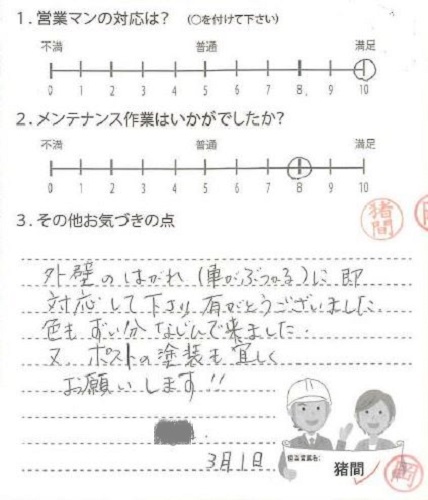 1.営業マンの対応は? (○を付けて下さい)
不満 普通 満足
0 1 2 3 4 5 6 7 8 9 10
2.メンテナンス作業はいかがでしたか?
不満 普通 満足
0 1 2 3 4 5 6 7 8 9 10
猪間
3.その他お気づきの点
外壁のはがれ(車がぶつかる)に即
対応して下さり有がとうございました.
色もずい分なじんで来ました.
又、ポストの塗装も宜しく
お願いします!!
3月1日
担当営業名:
猪間
岡